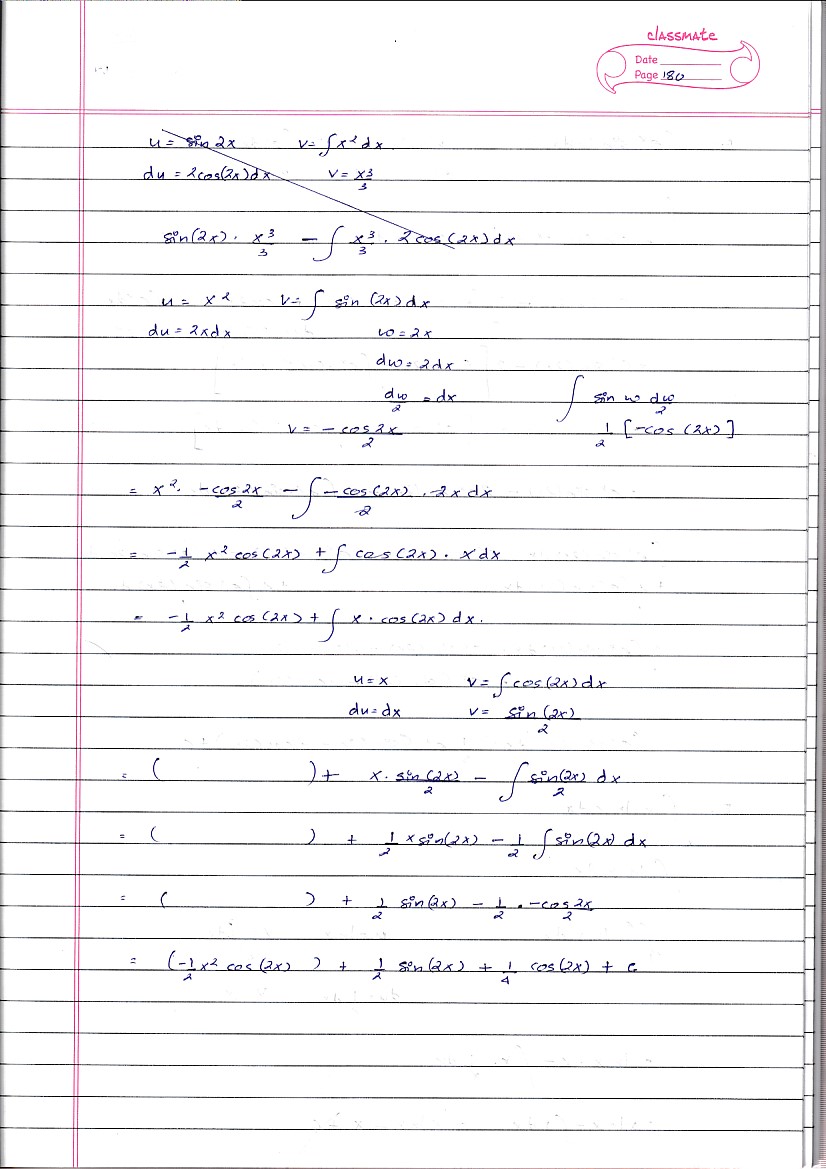 classmate
Date
Page 180
u = sin 2x v = ∫ x² dx
du = 2cos(2x)dx v = x³/3
sin(2x) · x³/3 − ∫ x³/3 · 2cos(2x)dx
u = x² v = ∫ sin (2x) dx
du = 2xdx w = 2x
dw = 2dx
dw/2 = dx ∫ sin w dw/2
v = −cos2x/2 1/2 [−cos (2x)]
= x² · −cos2x/2 − ∫ −cos(2x)/2 · 2x dx
= −1/2 x² cos(2x) + ∫ cos(2x) · x dx
= −1/2 x² cos(2x) + ∫ x · cos(2x) dx.
u = x v = ∫ cos(2x) dx
du = dx v = sin (2x)/2
= ( ) + x · sin(2x)/2 − ∫ sin(2x)/2 dx
= ( ) + 1/2 x sin(2x) − 1/2 ∫ sin(2x) dx
= ( ) + 1/2 sin(2x) − 1/2 · −cos2x/2
= (−1/2 x² cos(2x) ) + 1/2 sin(2x) + 1/4 cos(2x) + c